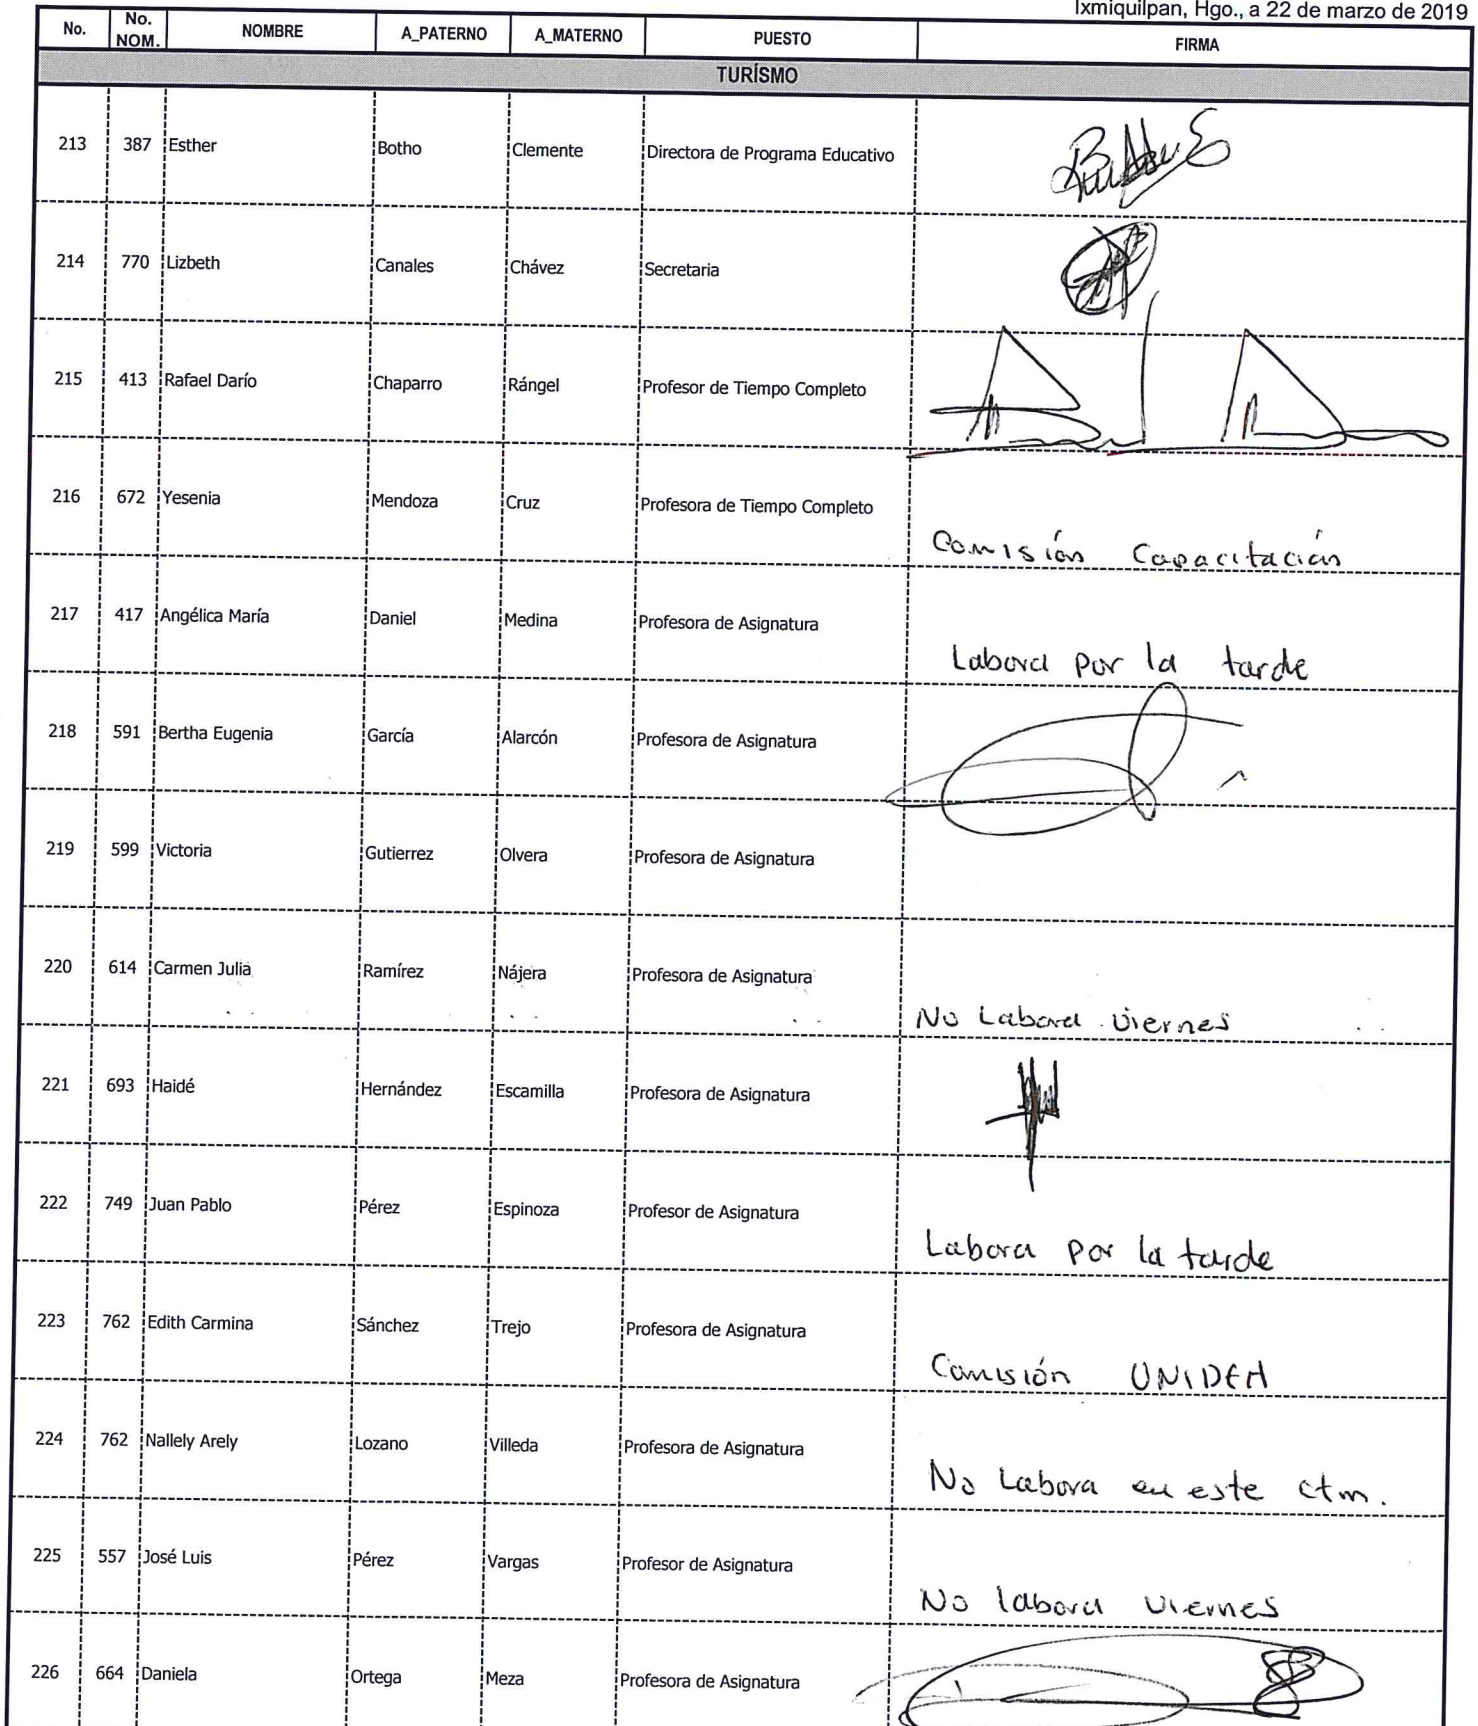 Ixmiquilpan, Hgo., a 22 de marzo de 2019
No. No. NOM. NOMBRE A_PATERNO A_MATERNO PUESTO FIRMA
TURÍSMO
213 387 Esther Botho Clemente Directora de Programa Educativo
214 770 Lizbeth Canales Chávez Secretaria
215 413 Rafael Darío Chaparro Rángel Profesor de Tiempo Completo
216 672 Yesenia Mendoza Cruz Profesora de Tiempo Completo
Comisión Capacitación
217 417 Angélica María Daniel Medina Profesora de Asignatura
Labora por la tarde
218 591 Bertha Eugenia García Alarcón Profesora de Asignatura
219 599 Victoria Gutierrez Olvera Profesora de Asignatura
220 614 Carmen Julia Ramírez Nájera Profesora de Asignatura
No Labora viernes
221 693 Haidé Hernández Escamilla Profesora de Asignatura
222 749 Juan Pablo Pérez Espinoza Profesor de Asignatura
Labora por la tarde
223 762 Edith Carmina Sánchez Trejo Profesora de Asignatura
Comisión UNIDEH
224 762 Nallely Arely Lozano Villeda Profesora de Asignatura
No Labora en este ctm.
225 557 José Luis Pérez Vargas Profesor de Asignatura
No labora viernes
226 664 Daniela Ortega Meza Profesora de Asignatura